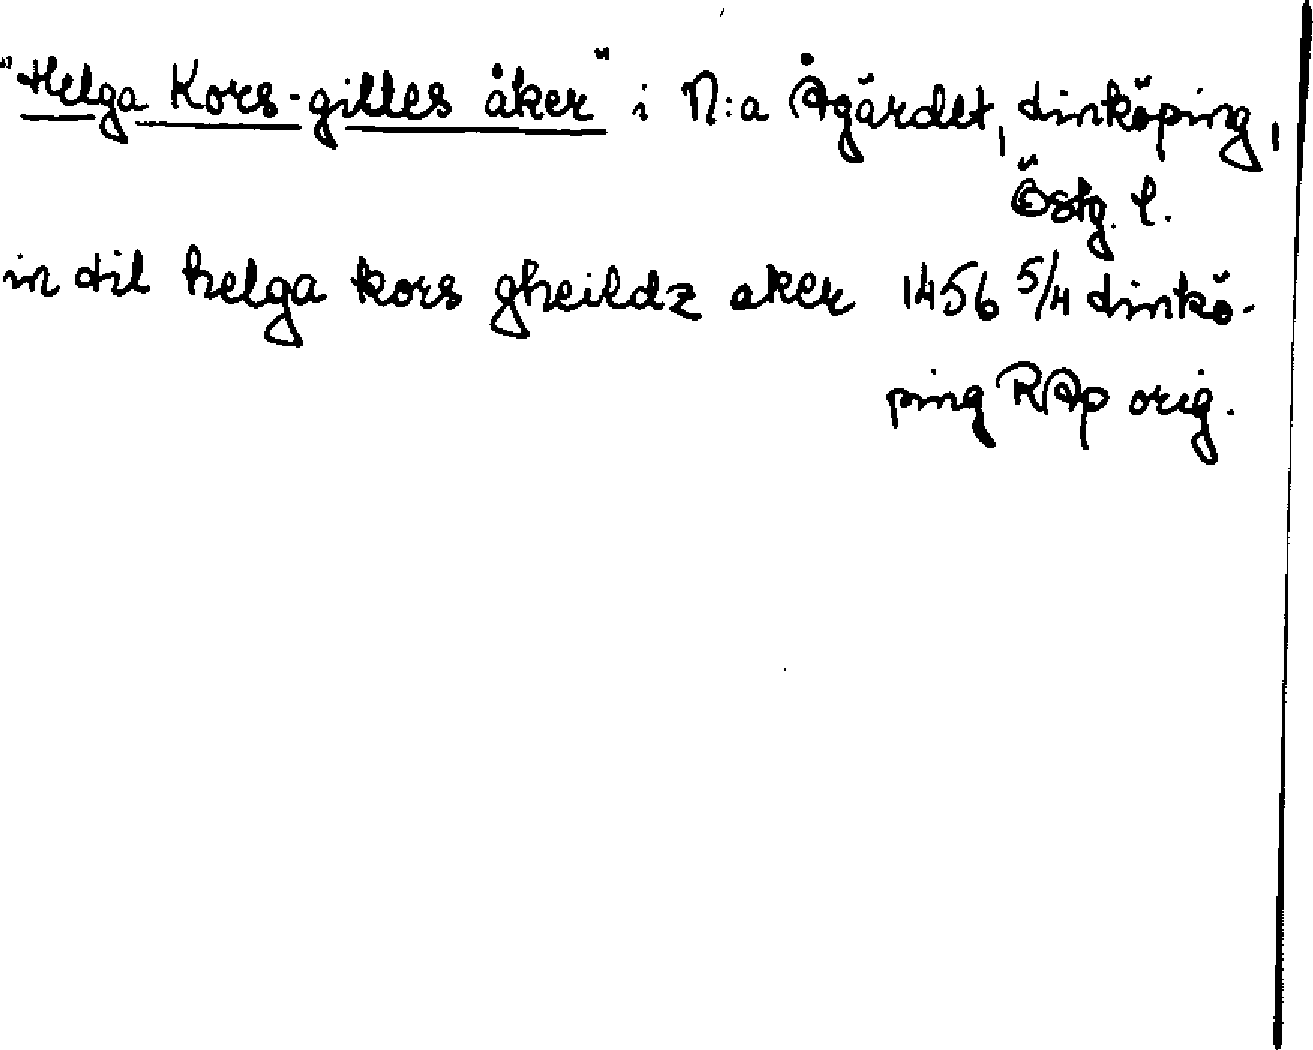 "Helga Kors-gilles åker" i N:a Ågärdet, Linköping,
Östg. l.
in til helga kors gheildz aker 1456 5/4 Linkö-
ping RAp orig.